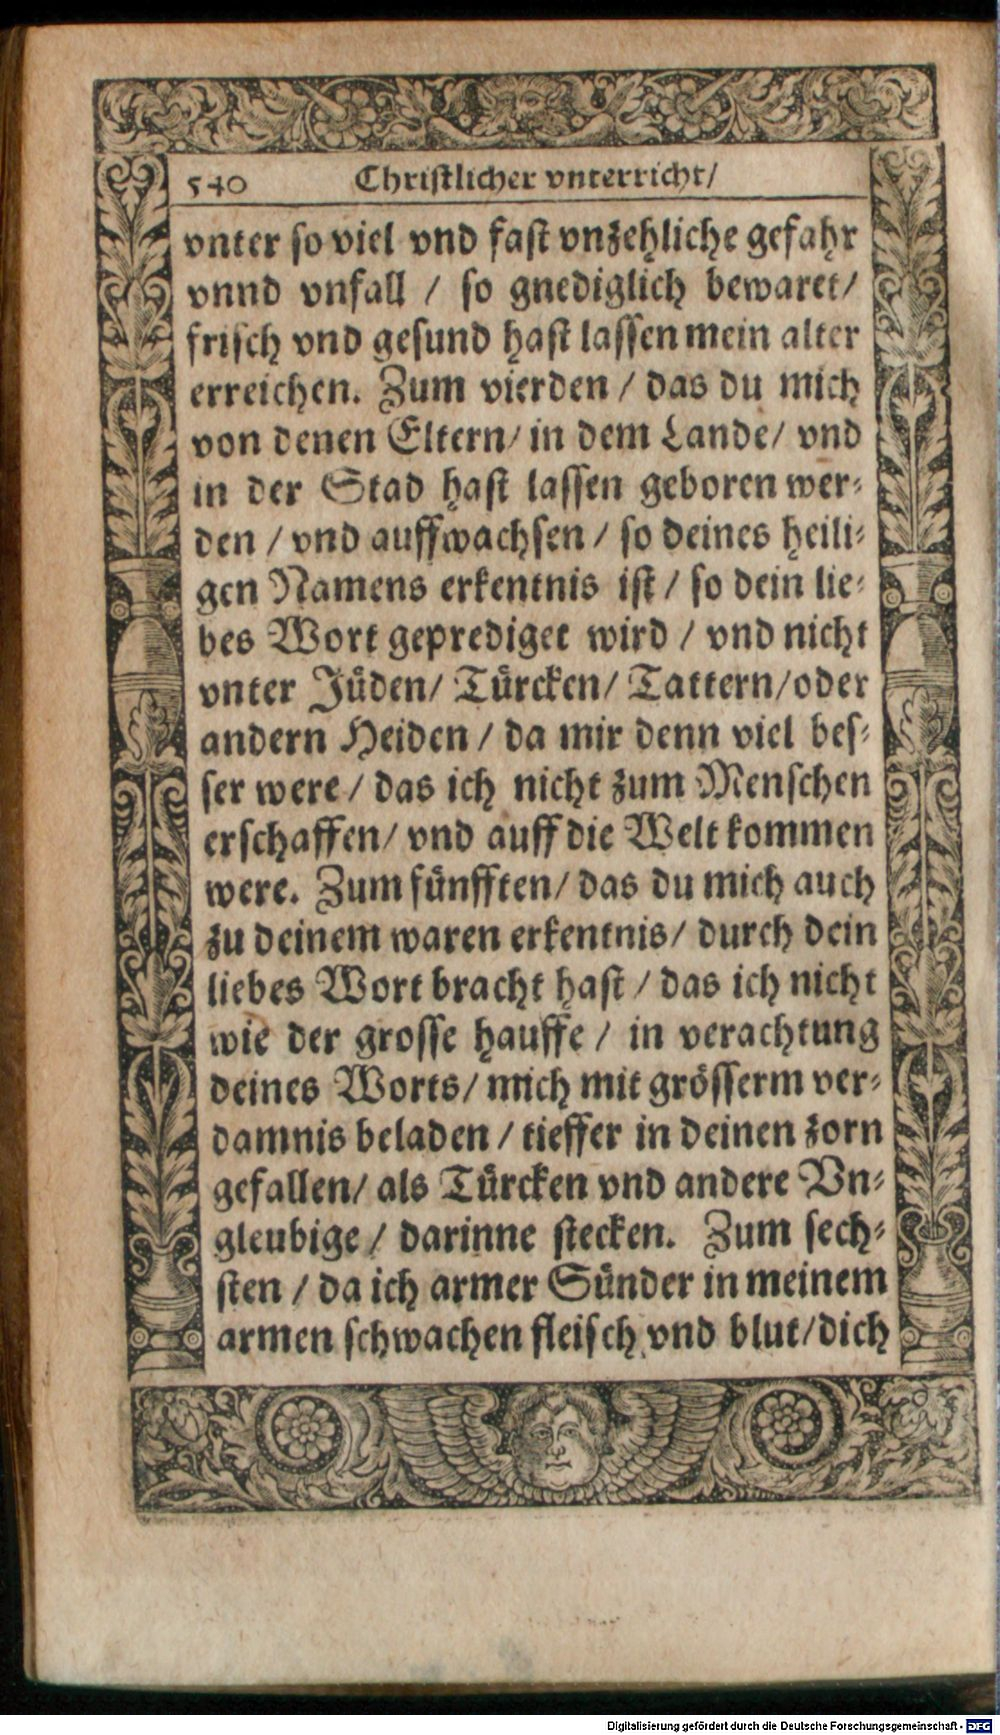 540 Christlicher vnterricht/
vnter so viel vnd fast vnzehliche gefahr
vnnd vnfall / so gnediglich bewaret/
frisch vnd gesund hast lassen mein alter
erreichen. Zum vierden / das du mich
von denen Eltern/ in dem Lande/ vnd
in der Stad hast lassen geboren wer-
den / vnd auffwachsen / so deines heili-
gen Namens erkentnis ist / so dein lie-
bes Wort geprediget wird / vnd nicht
vnter Jüden/ Türcken/ Tattern/oder
andern Heiden / da mir denn viel bes-
ser were / das ich nicht zum Menschen
erschaffen/ vnd auff die Welt kommen
were. Zum fünfften/ das du mich auch
zu deinem waren erkentnis/ durch dein
liebes Wort bracht hast / das ich nicht
wie der grosse hauffe / in verachtung
deines Worts/ mich mit grösserm ver-
damnis beladen / tieffer in deinen zorn
gefallen/ als Türcken vnd andere Vn-
gleubige / darinne stecken. Zum sech-
sten / da ich armer Sünder in meinem
armen schwachen fleisch vnd blut/dich
Digitalisierung gefördert durch die Deutsche Forschungsgemeinschaft - DFG